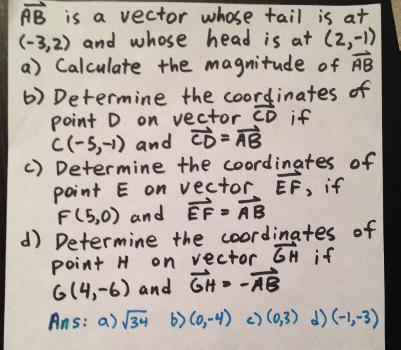 AB is a vector whose tail is at
(-3,2) and whose head is at (2,-1)
a) Calculate the magnitude of AB
b) Determine the coordinates of
point D on vector CD if
C(-5,-1) and CD = AB
c) Determine the coordinates of
point E on vector EF, if
F(5,0) and EF = AB
d) Determine the coordinates of
point H on vector GH if
G(4,-6) and GH = -AB
Ans: a) √34 b) (0,-4) c) (0,3) d) (-1,-3)